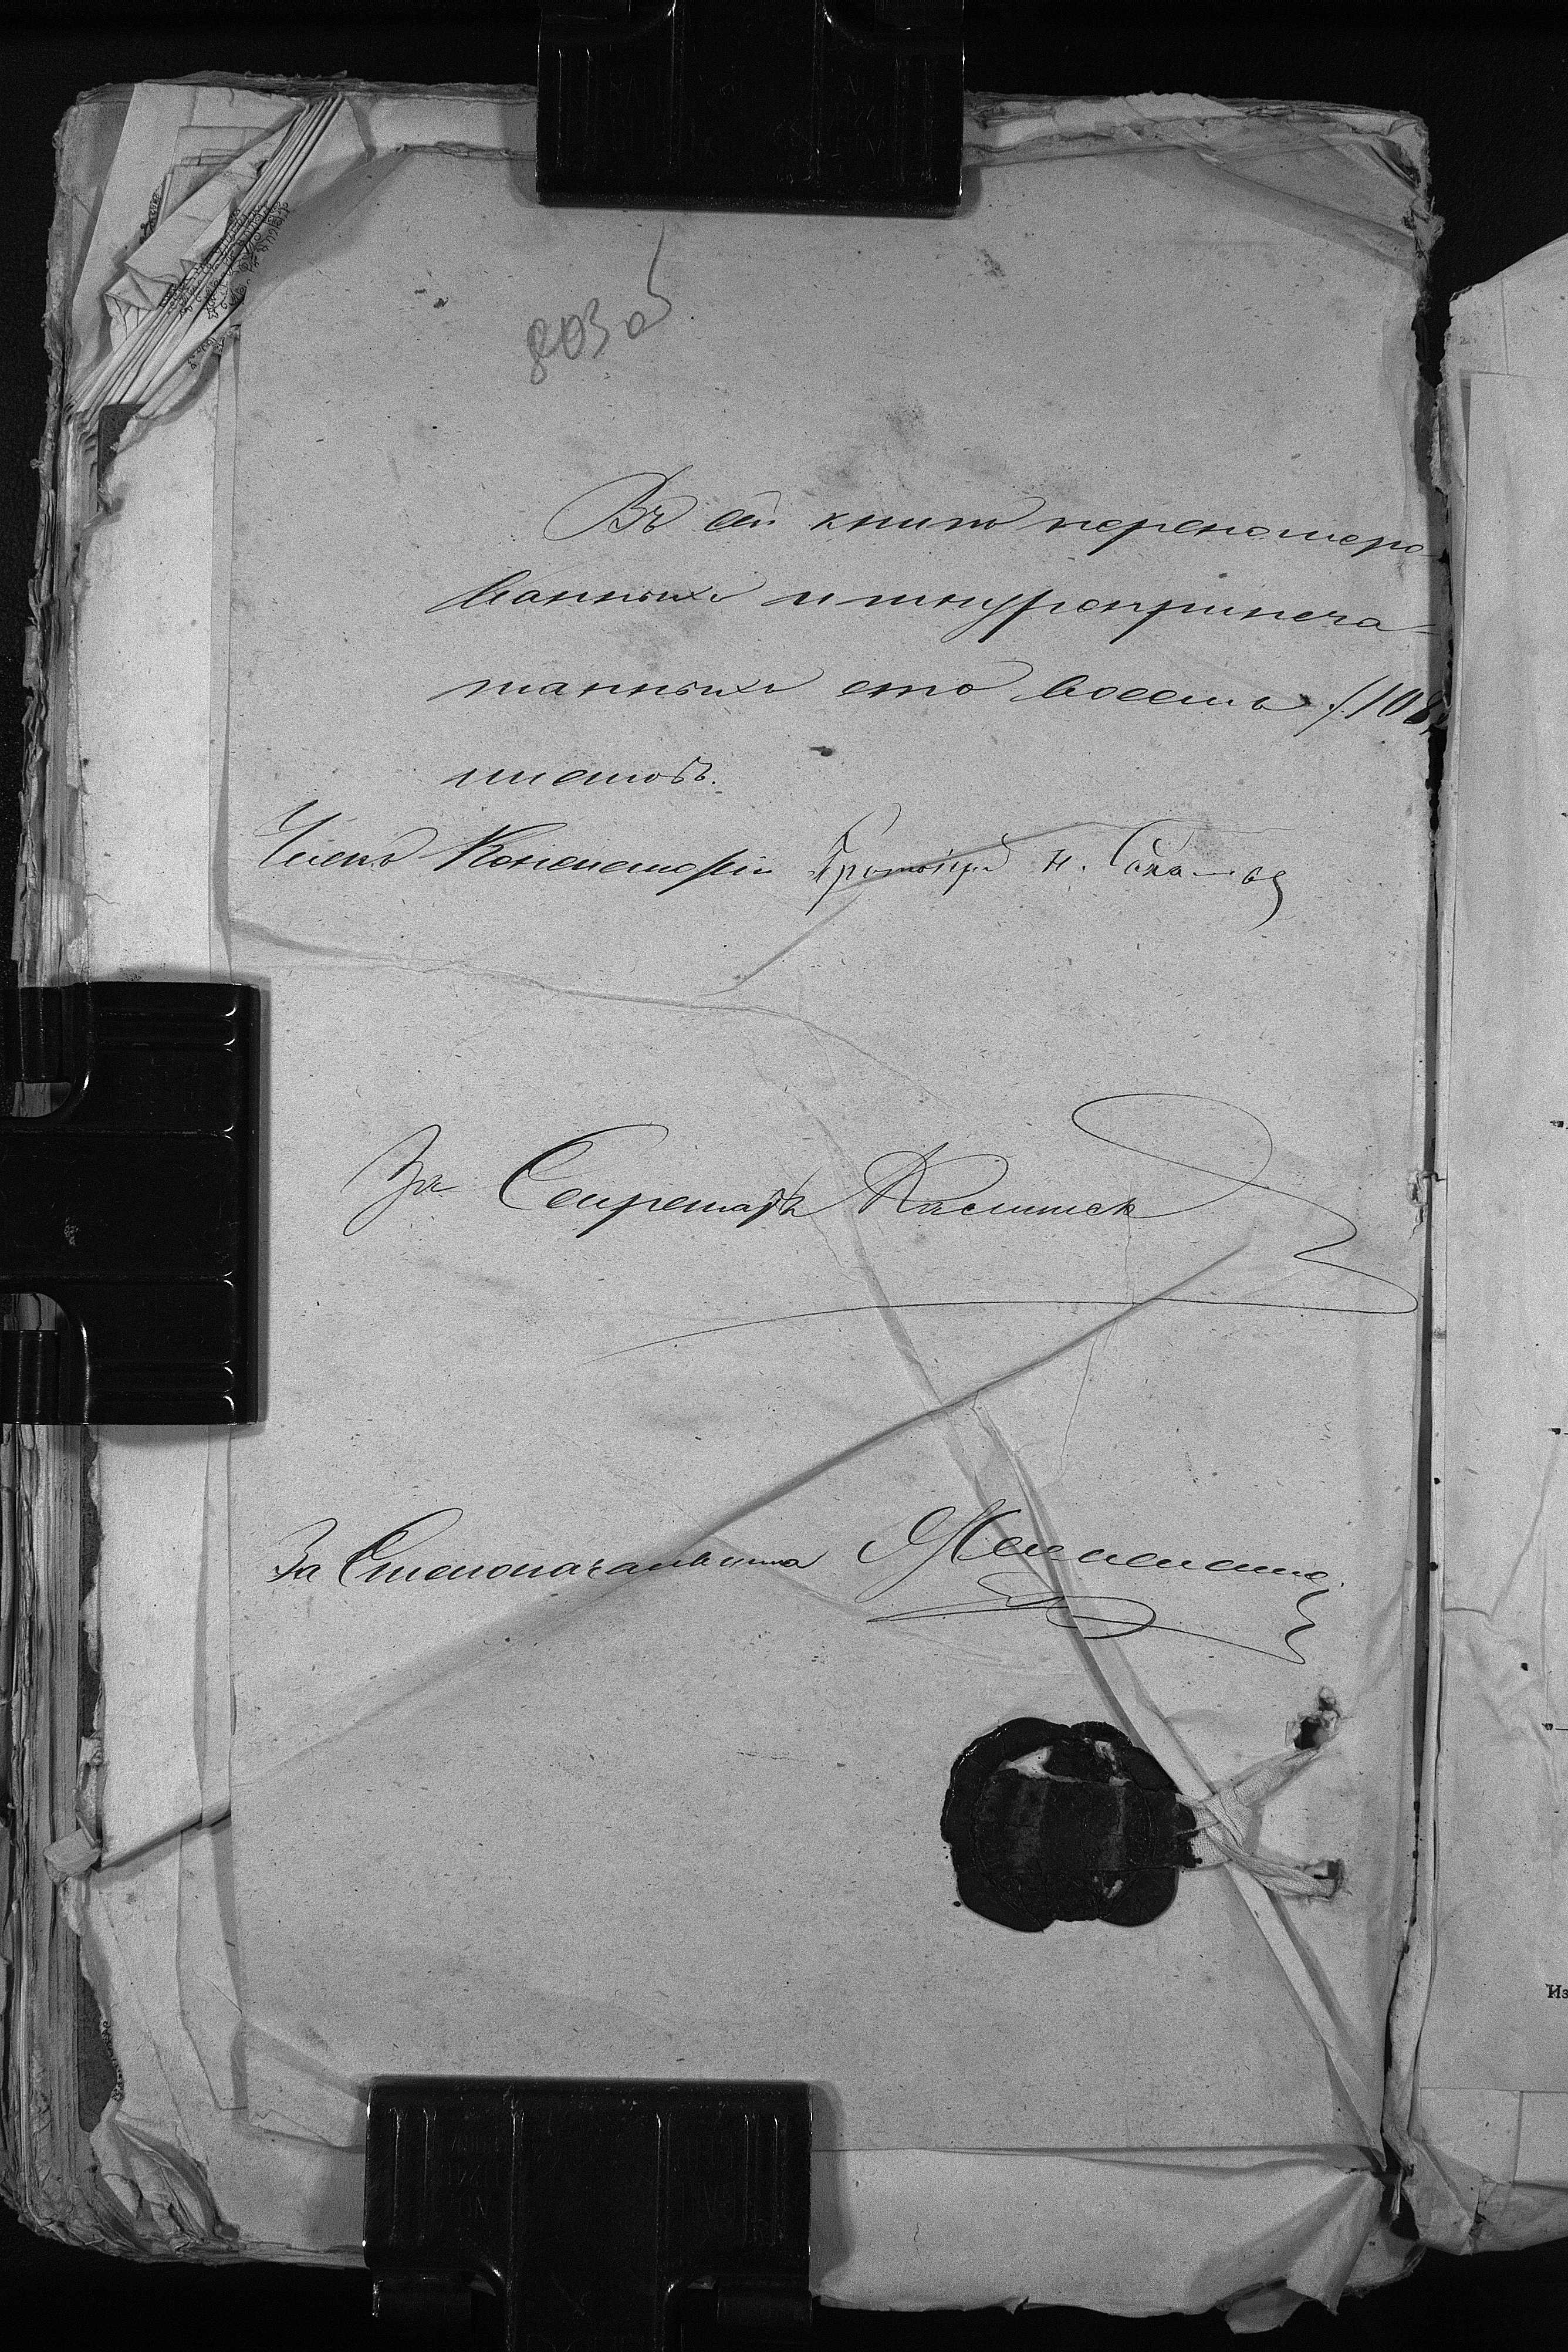 803 об
Въ сей книгѣ перенумеро-
ванныхъ и шнуроприпеча-
танныхъ сто восемь /108/
листовъ.
Членъ Консисторіи Протоіерей Н.
За Секретаря
За Столоначальника
Из